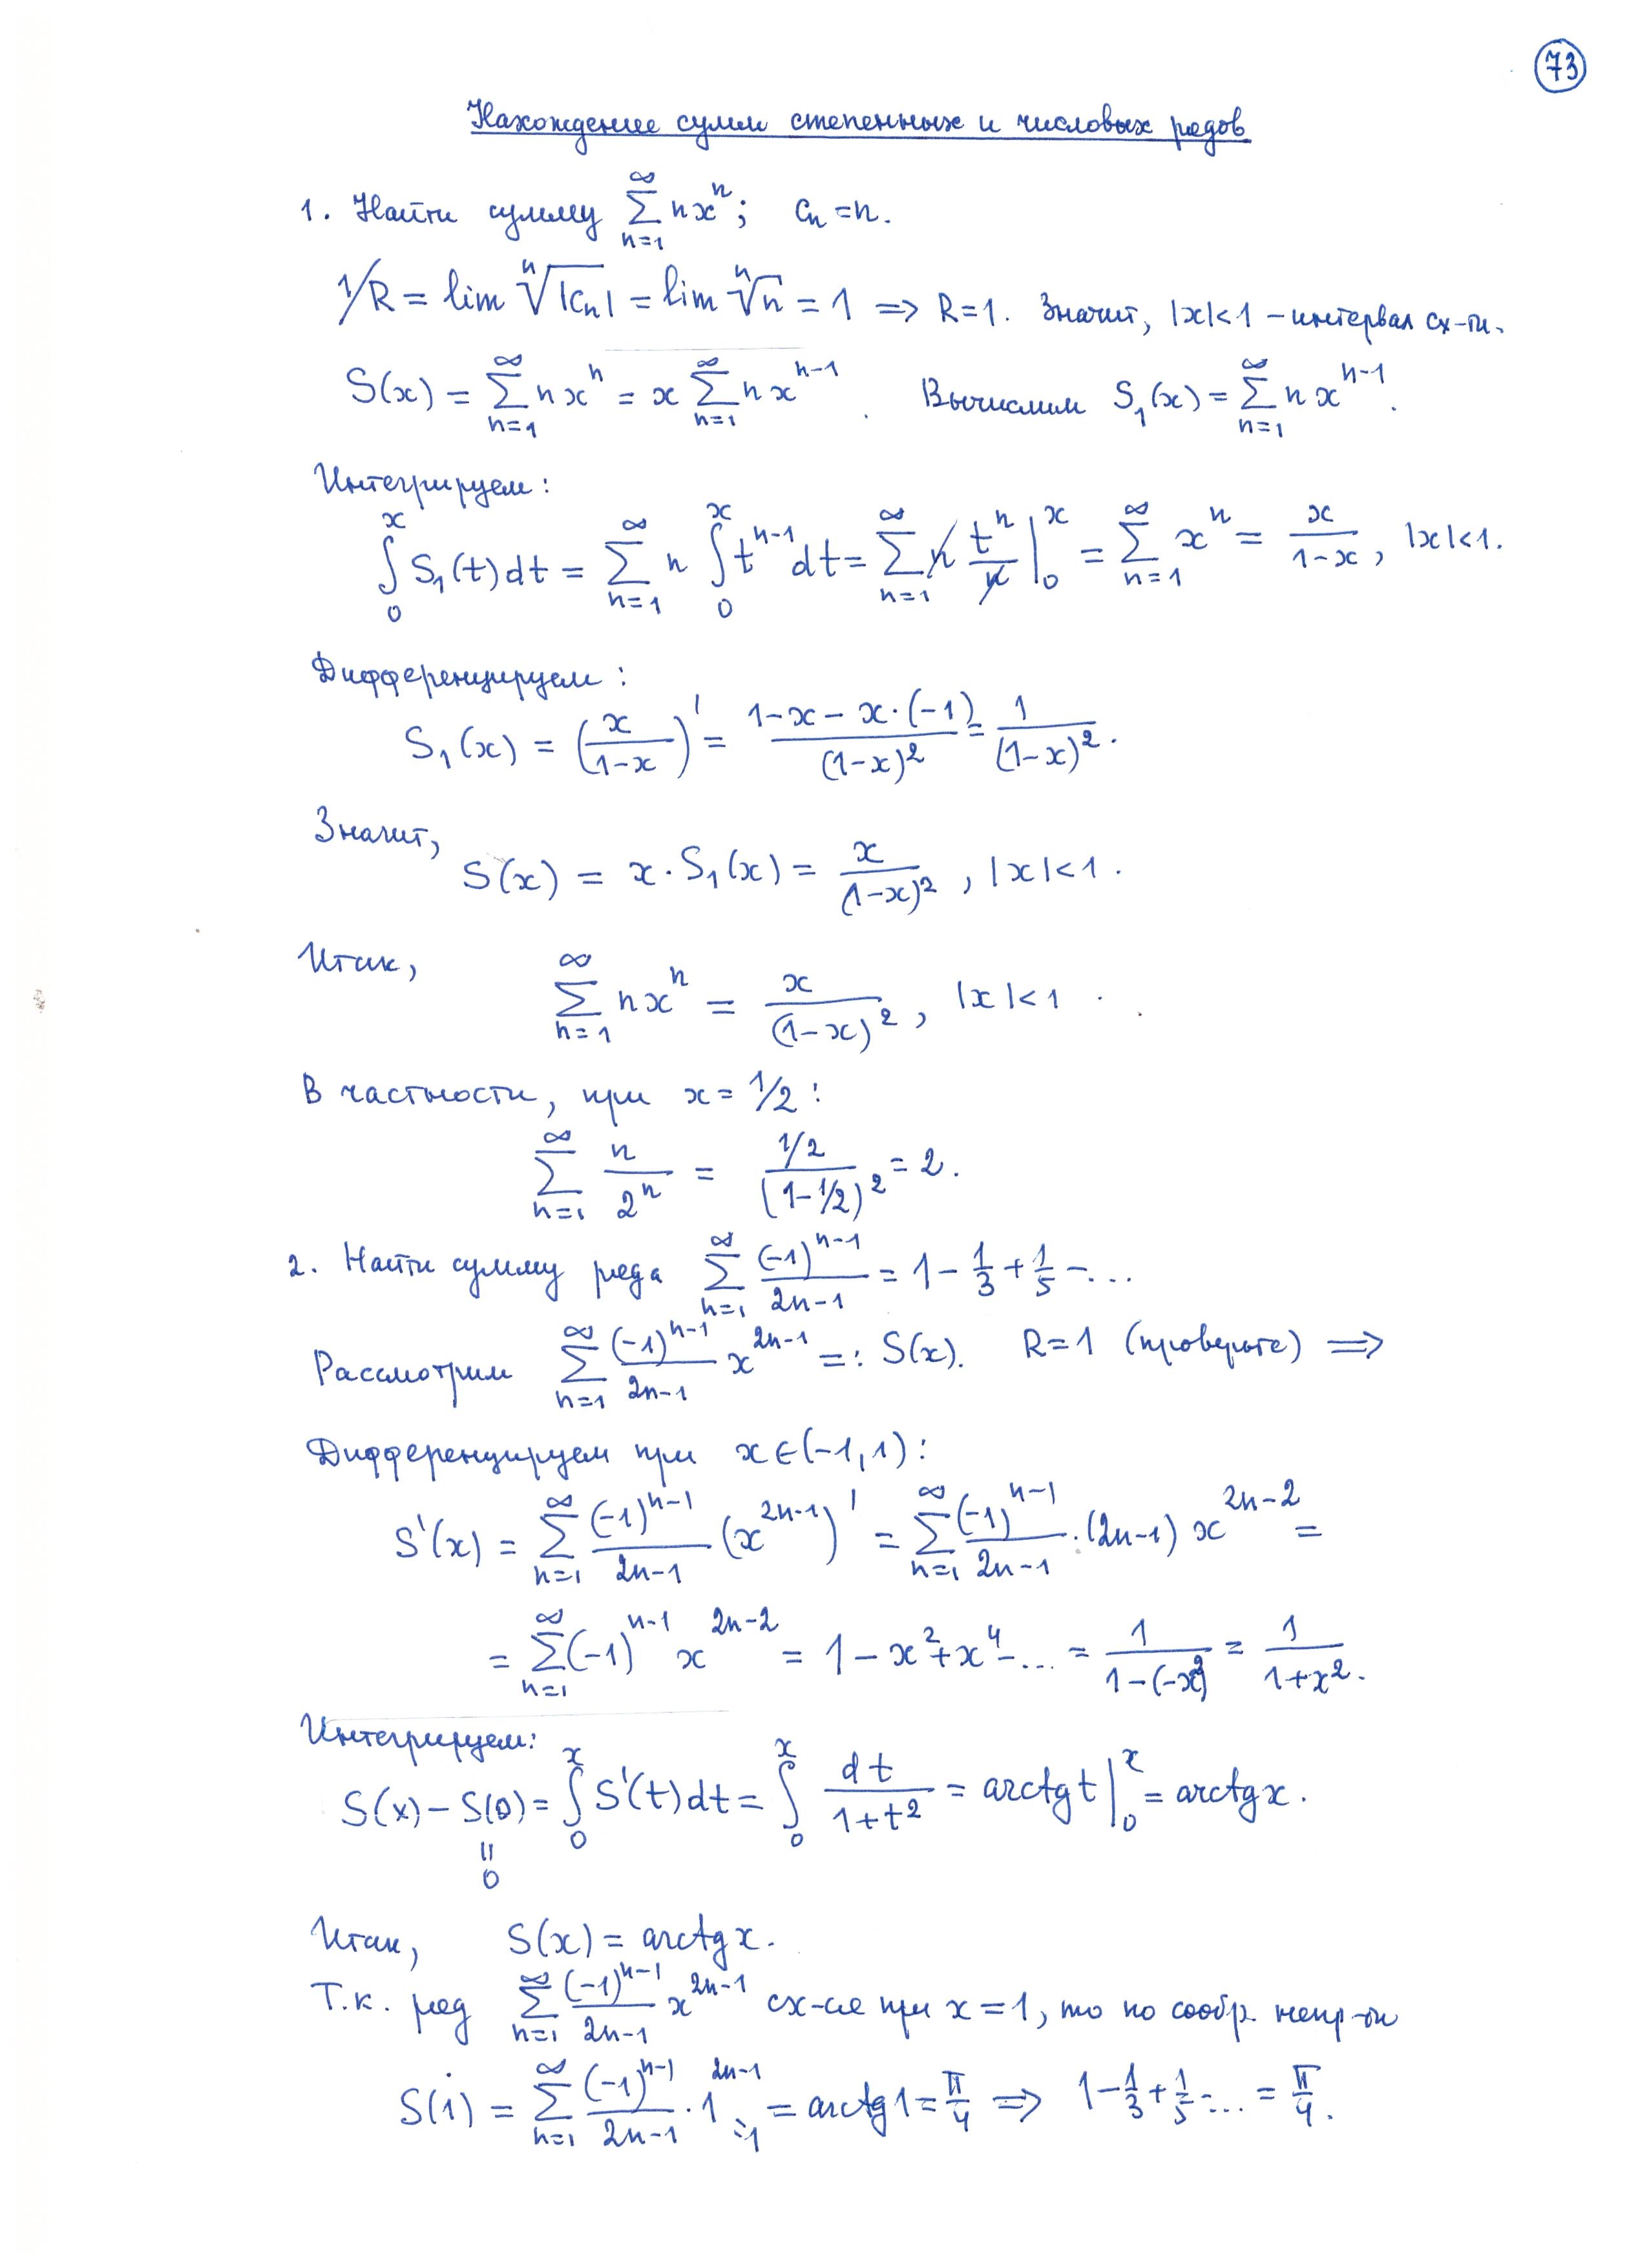 73
Нахождение сумм степенных и числовых рядов
1. Найти сумму $\sum_{n=1}^{\infty} nx^n$; $c_n = n$.
$1/R = \lim \sqrt[n]{|c_n|} = \lim \sqrt[n]{n} = 1 \Rightarrow R = 1$. Значит, $|x|<1$ – интервал сх-ти.
$S(x) = \sum_{n=1}^{\infty} nx^n = x \sum_{n=1}^{\infty} nx^{n-1}$. Вычислим $S_1(x) = \sum_{n=1}^{\infty} nx^{n-1}$.
Интегрируем:
$\int_0^x S_1(t)dt = \sum_{n=1}^{\infty} n \int_0^x t^{n-1}dt = \sum_{n=1}^{\infty} \cancel{n} \frac{t^n}{\cancel{n}} \Big|_0^x = \sum_{n=1}^{\infty} x^n = \frac{x}{1-x}$, $|x|<1$.
Дифференцируем:
$S_1(x) = \left(\frac{x}{1-x}\right)' = \frac{1-x-x\cdot(-1)}{(1-x)^2} = \frac{1}{(1-x)^2}$.
Значит,
$S(x) = x \cdot S_1(x) = \frac{x}{(1-x)^2}$, $|x|<1$.
Итак, $\sum_{n=1}^{\infty} nx^n = \frac{x}{(1-x)^2}$, $|x|<1$.
В частности, при $x = 1/2$:
$\sum_{n=1}^{\infty} \frac{n}{2^n} = \frac{1/2}{(1-1/2)^2} = 2$.
2. Найти сумму ряда $\sum_{n=1}^{\infty} \frac{(-1)^{n-1}}{2n-1} = 1 - \frac{1}{3} + \frac{1}{5} - \ldots$
Рассмотрим $\sum_{n=1}^{\infty} \frac{(-1)^{n-1}}{2n-1} x^{2n-1} =: S(x)$. $R=1$ (проверьте) $\Rightarrow$
Дифференцируем при $x \in (-1,1)$:
$S'(x) = \sum_{n=1}^{\infty} \frac{(-1)^{n-1}}{2n-1} (x^{2n-1})' = \sum_{n=1}^{\infty} \frac{(-1)^{n-1}}{2n-1} \cdot (2n-1) x^{2n-2} =$
$= \sum_{n=1}^{\infty} (-1)^{n-1} x^{2n-2} = 1 - x^2 + x^4 - \ldots = \frac{1}{1-(-x^2)} = \frac{1}{1+x^2}$.
Интегрируем:
$S(x) - \underset{\underset{0}{\shortparallel}}{S(0)} = \int_0^x S'(t)dt = \int_0^x \frac{dt}{1+t^2} = arctg t \Big|_0^x = arctg x$.
Итак, $S(x) = arctg x$.
Т.к. ряд $\sum_{n=1}^{\infty} \frac{(-1)^{n-1}}{2n-1} x^{2n-1}$ сх-ся при $x=1$, то по сообр. непр-ти
$S(1) = \sum_{n=1}^{\infty} \frac{(-1)^{n-1}}{2n-1} \cdot 1^{2n-1} = arctg 1 = \frac{\pi}{4} \Rightarrow 1 - \frac{1}{3} + \frac{1}{5} - \ldots = \frac{\pi}{4}$.